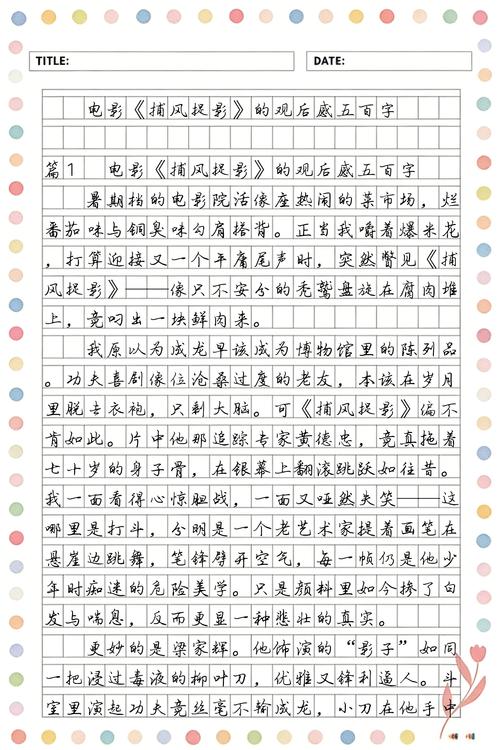 TITLE:
DATE:
电影《捕风捉影》的观后感五百字
篇1 电影《捕风捉影》的观后感五百字
暑期档的电影院活像座热闹的菜市场，烂
番茄味与铜臭味勾肩搭背。正当我嚼着爆米花
，打算迎接又一个平庸尾声时，突然瞥见《捕
风捉影》——像只不安分的秃鹫盘旋在腐肉堆
上，竟叼出一块鲜肉来。
我原以为成龙早该成为博物馆里的陈列品
。功夫喜剧像位沧桑过度的老友，本该在岁月
里脱去衣袍，只剩大脑。可《捕风捉影》偏不
肯如此。片中他那追踪专家黄德忠，竟真拖着
七十岁的身子骨，在银幕上翻滚跳跃如往昔。
我一面看得心惊胆战，一面又哑然失笑——这
哪里是打斗，分明是一个老艺术家提着画笔在
悬崖边跳舞，笔锋劈开空气，每一帧仍是他少
年时痴迷的危险美学。只是颜料里如今掺了白
发与喘息，反而更显一种悲壮的真实。
更妙的是梁家辉。他饰演的“影子”如同
一把浸过毒液的柳叶刀，优雅又锋利逼人。斗
室里演起功夫竟丝毫不输成龙，小刀在他手中